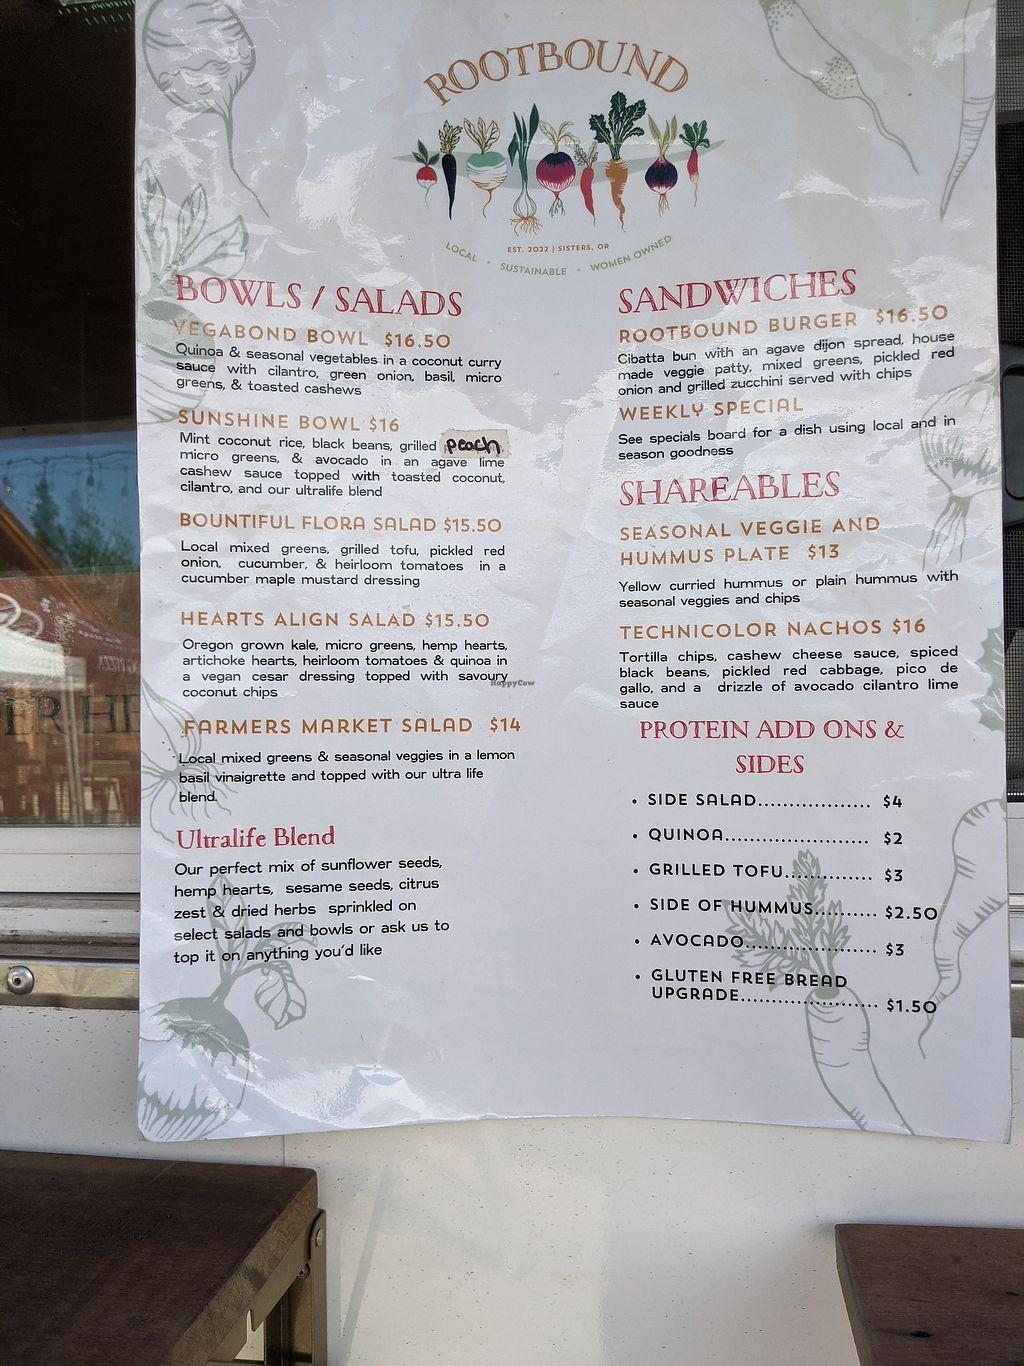 ROOTBOUND
EST. 2022 | SISTERS, OR
LOCAL • SUSTAINABLE • WOMEN OWNED
BOWLS / SALADS
VEGABOND BOWL $16.50
Quinoa & seasonal vegetables in a coconut curry
sauce with cilantro, green onion, basil, micro
greens, & toasted cashews
SUNSHINE BOWL $16
Mint coconut rice, black beans, grilled peach
micro greens, & avocado in an agave lime
cashew sauce topped with toasted coconut,
cilantro, and our ultralife blend
BOUNTIFUL FLORA SALAD $15.50
Local mixed greens, grilled tofu, pickled red
onion, cucumber, & heirloom tomatoes in a
cucumber maple mustard dressing
HEARTS ALIGN SALAD $15.50
Oregon grown kale, micro greens, hemp hearts,
artichoke hearts, heirloom tomatoes & quinoa in
a vegan cesar dressing topped with savoury
coconut chips
FARMERS MARKET SALAD $14
Local mixed greens & seasonal veggies in a lemon
basil vinaigrette and topped with our ultra life
blend.
Ultralife Blend
Our perfect mix of sunflower seeds,
hemp hearts, sesame seeds, citrus
zest & dried herbs sprinkled on
select salads and bowls or ask us to
top it on anything you'd like
SANDWICHES
ROOTBOUND BURGER $16.50
Cibatta bun with an agave dijon spread, house
made veggie patty, mixed greens, pickled red
onion and grilled zucchini served with chips
WEEKLY SPECIAL
See specials board for a dish using local and in
season goodness
SHAREABLES
SEASONAL VEGGIE AND
HUMMUS PLATE $13
Yellow curried hummus or plain hummus with
seasonal veggies and chips
TECHNICOLOR NACHOS $16
Tortilla chips, cashew cheese sauce, spiced
black beans, pickled red cabbage, pico de
gallo, and a drizzle of avocado cilantro lime
sauce
PROTEIN ADD ONS &
SIDES
• SIDE SALAD.................. $4
• QUINOA....................... $2
• GRILLED TOFU.............. $3
• SIDE OF HUMMUS.......... $2.50
• AVOCADO..................... $3
• GLUTEN FREE BREAD
UPGRADE...................... $1.50
HappyCow
PIZZA